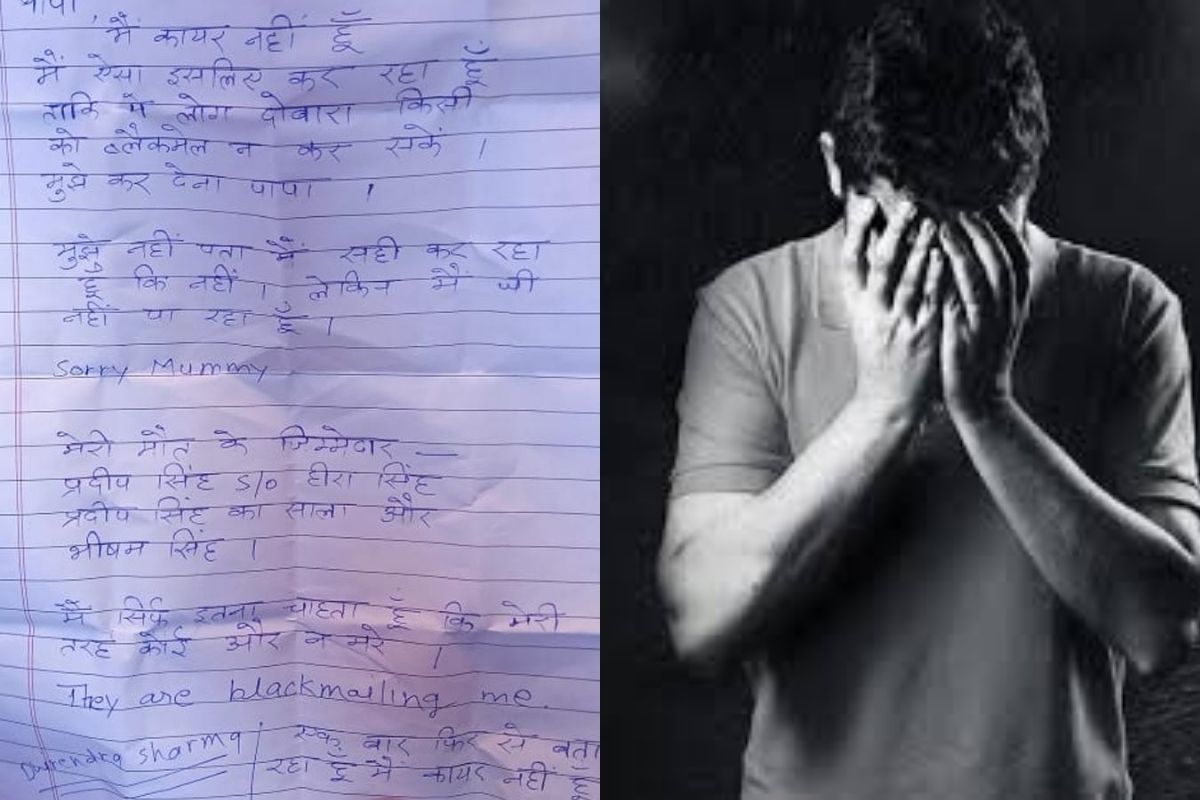 पापा
मैं कायर नहीं हूँ
मैं ऐसा इसलिए कर रहा हूँ
ताकि ये लोग दोबारा किसी
को ब्लैकमेल न कर सकें ।
मुझे कर देना पापा ।
मुझे नहीं पता मैं सही कर रहा
हूँ कि नहीं । लेकिन मैं जी
नहीं पा रहा हूँ ।
Sorry Mummy
मेरी मौत के जिम्मेदार —
प्रदीप सिंह S/o हीरा सिंह
प्रदीप सिंह का साला और
भीषम सिंह ।
मैं सिर्फ इतना चाहता हूँ कि मेरी
तरह कोई और न मरे ।
They are blackmailing me.
Sharma
एक बार फिर से बता
रहा हूँ मैं कायर नहीं हूँ